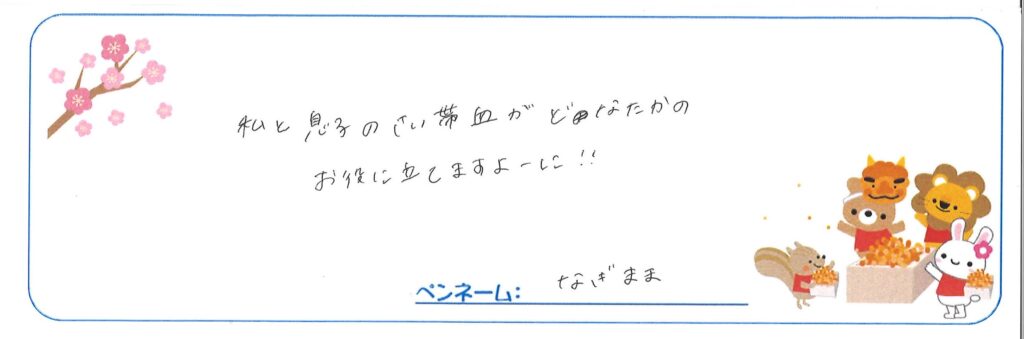 私と息子のさい帯血がどなたかの
お役に立てますよーに!!
ペンネーム: なぎまま